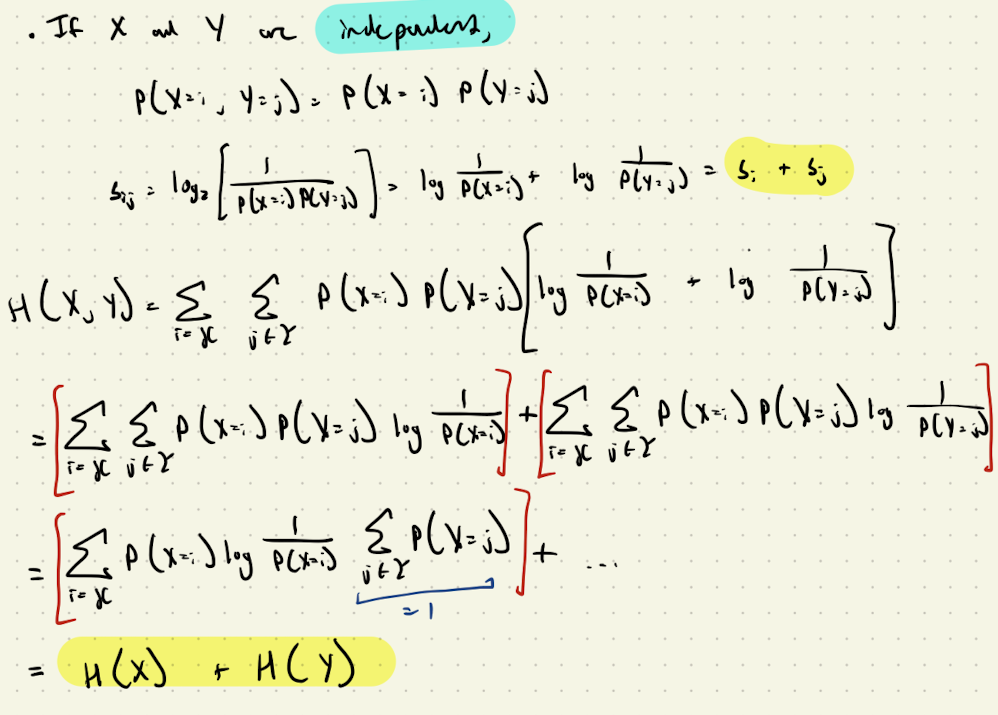 . If X and Y are independent,
P(X=i, Y=j) = P(X=i) P(Y=j)
s_ij = log₂ [ 1 / P(X=i) P(Y=j) ] = log 1/P(X=i) + log 1/P(Y=j) = s_i + s_j
H(X, Y) = ∑_{i=𝒳} ∑_{j∈𝒴} P(X=i) P(Y=j) [ log 1/P(X=i) + log 1/P(Y=j) ]
= [ ∑_{i=𝒳} ∑_{j∈𝒴} P(X=i) P(Y=j) log 1/P(X=i) ] + [ ∑_{i=𝒳} ∑_{j∈𝒴} P(X=i) P(Y=j) log 1/P(Y=j) ]
= [ ∑_{i=𝒳} P(X=i) log 1/P(X=i) ∑_{j∈𝒴} P(Y=j) ] + ...
= 1
= H(X) + H(Y)